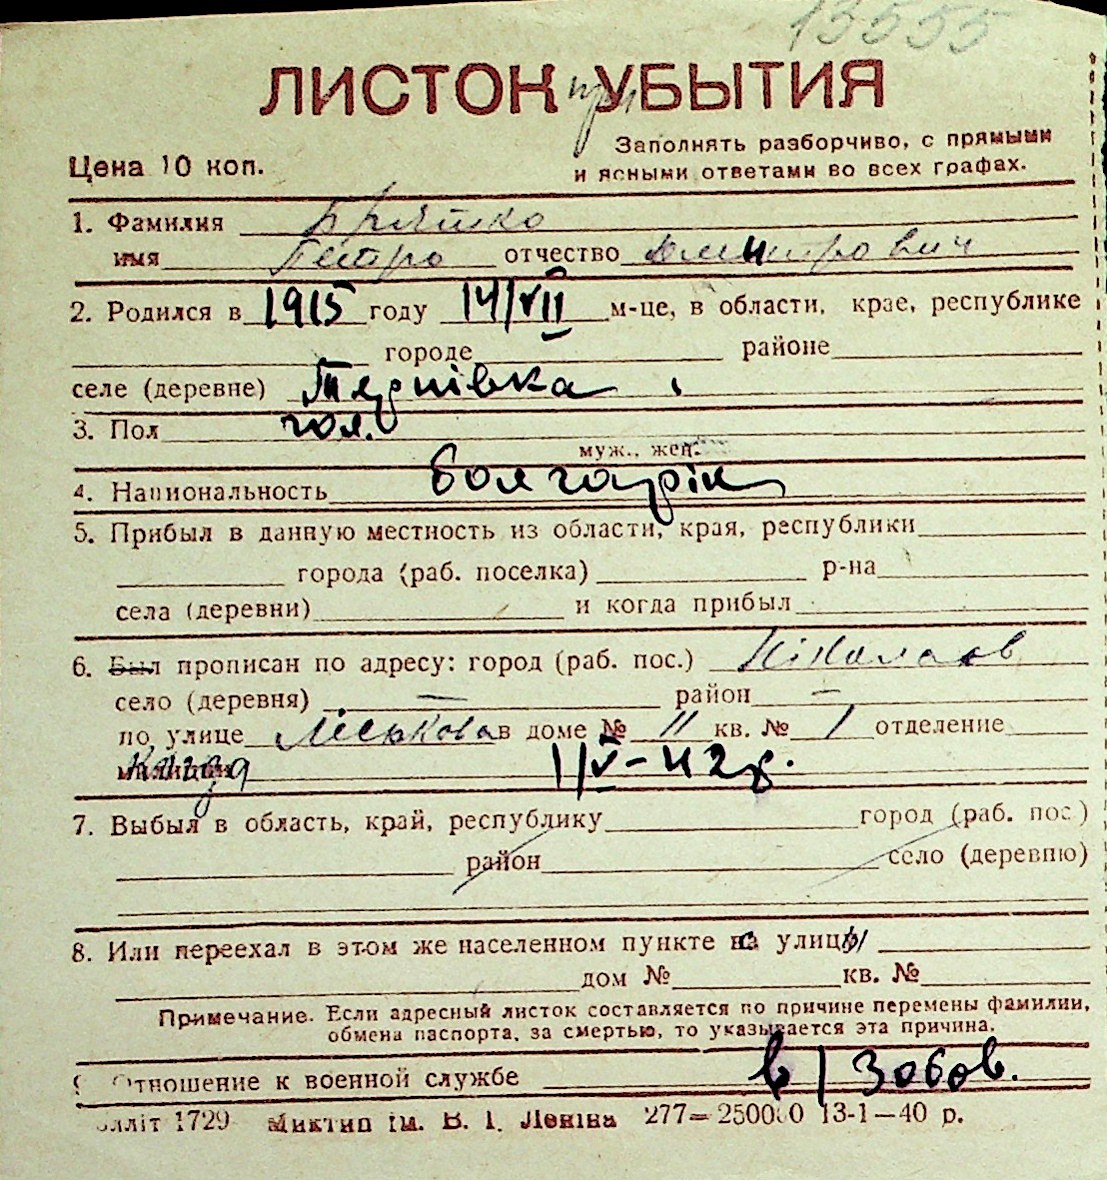 13555
ЛИСТОК при УБЫТИЯ
Заполнять разборчиво, с прямыми
Цена 10 коп.
и ясными ответами во всех графах.
1. Фамилия
имя Петро отчество Дмитрович
2. Родился в 1915 году 14/VII м-це, в области, крае, республике
городе районе
селе (деревне) Тернівка
3. Пол чол.
муж., жен.
4. Национальность болгарін
5. Прибыл в данную местность из области, края, республики
города (раб. поселка) р-на
села (деревни) и когда прибыл
6. Был прописан по адресу: город (раб. пос.) Ніколаев
село (деревня) — район —
по улице в доме № 11 кв. № 1 отделение
милиции когда 1/V-42г.
7. Выбыл в область, край, республику город (раб. пос.)
район село (деревню)
8. Или переехал в этом же населенном пункте на улицу
дом № кв. №
Примечание. Если адресный листок составляется по причине перемены фамилии,
обмена паспорта, за смертью, то указывается эта причина.
Отношение к военной службе в/зобов.
лліт 1729 Миктип ім. В. І. Леніна 277—250000 13-1—40 р.